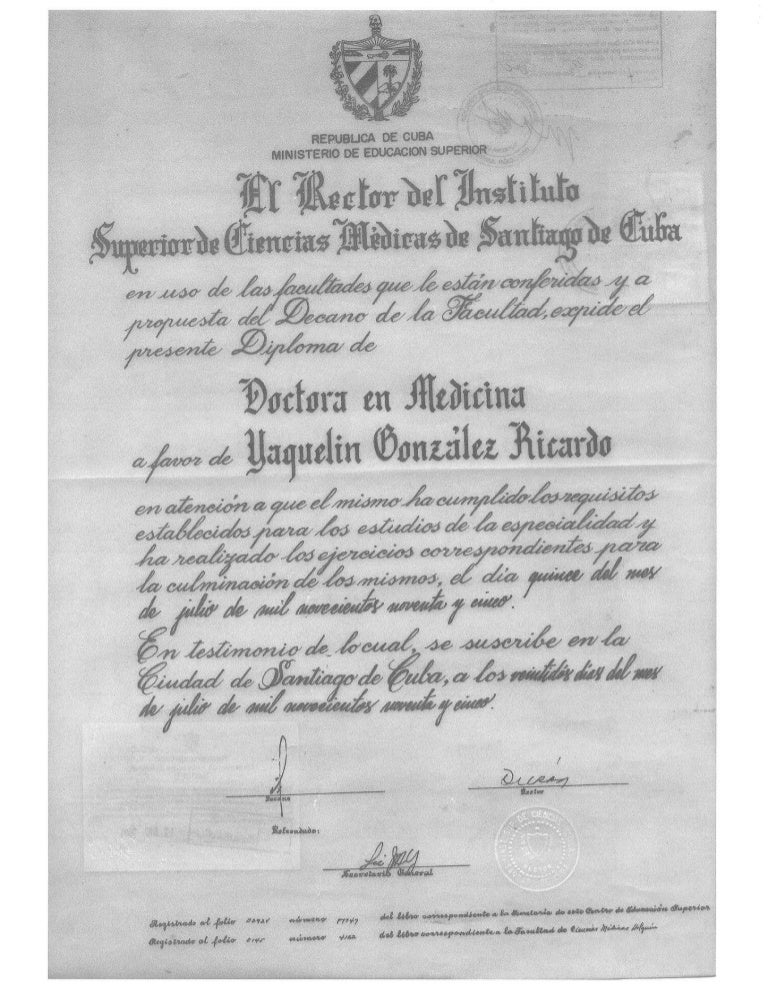 REPUBLICA DE CUBA
MINISTERIO DE EDUCACION SUPERIOR
El Rector del Instituto
Superior de Ciencias Médicas de Santiago de Cuba
en uso de las facultades que le están conferidas y a
propuesta del Decano de la Facultad, expide el
presente Diploma de
Doctora en Medicina
a favor de Yaquelin González Ricardo
en atención a que el mismo ha cumplido los requisitos
establecidos para los estudios de la especialidad y
ha realizado los ejercicios correspondientes para
la culminación de los mismos, el día quince del mes
de julio de mil novecientos noventa y cinco.
En testimonio de lo cual, se suscribe en la
Ciudad de Santiago de Cuba, a los veintidós días del mes
de julio de mil novecientos noventa y cinco.
Decano
Rector
Refrendado:
Secretario General
Registrado al folio número del libro correspondiente a la Secretaría de este Centro de Educación Superior
Registrado al folio número del libro correspondiente a la Facultad de Ciencias Médicas Holguín